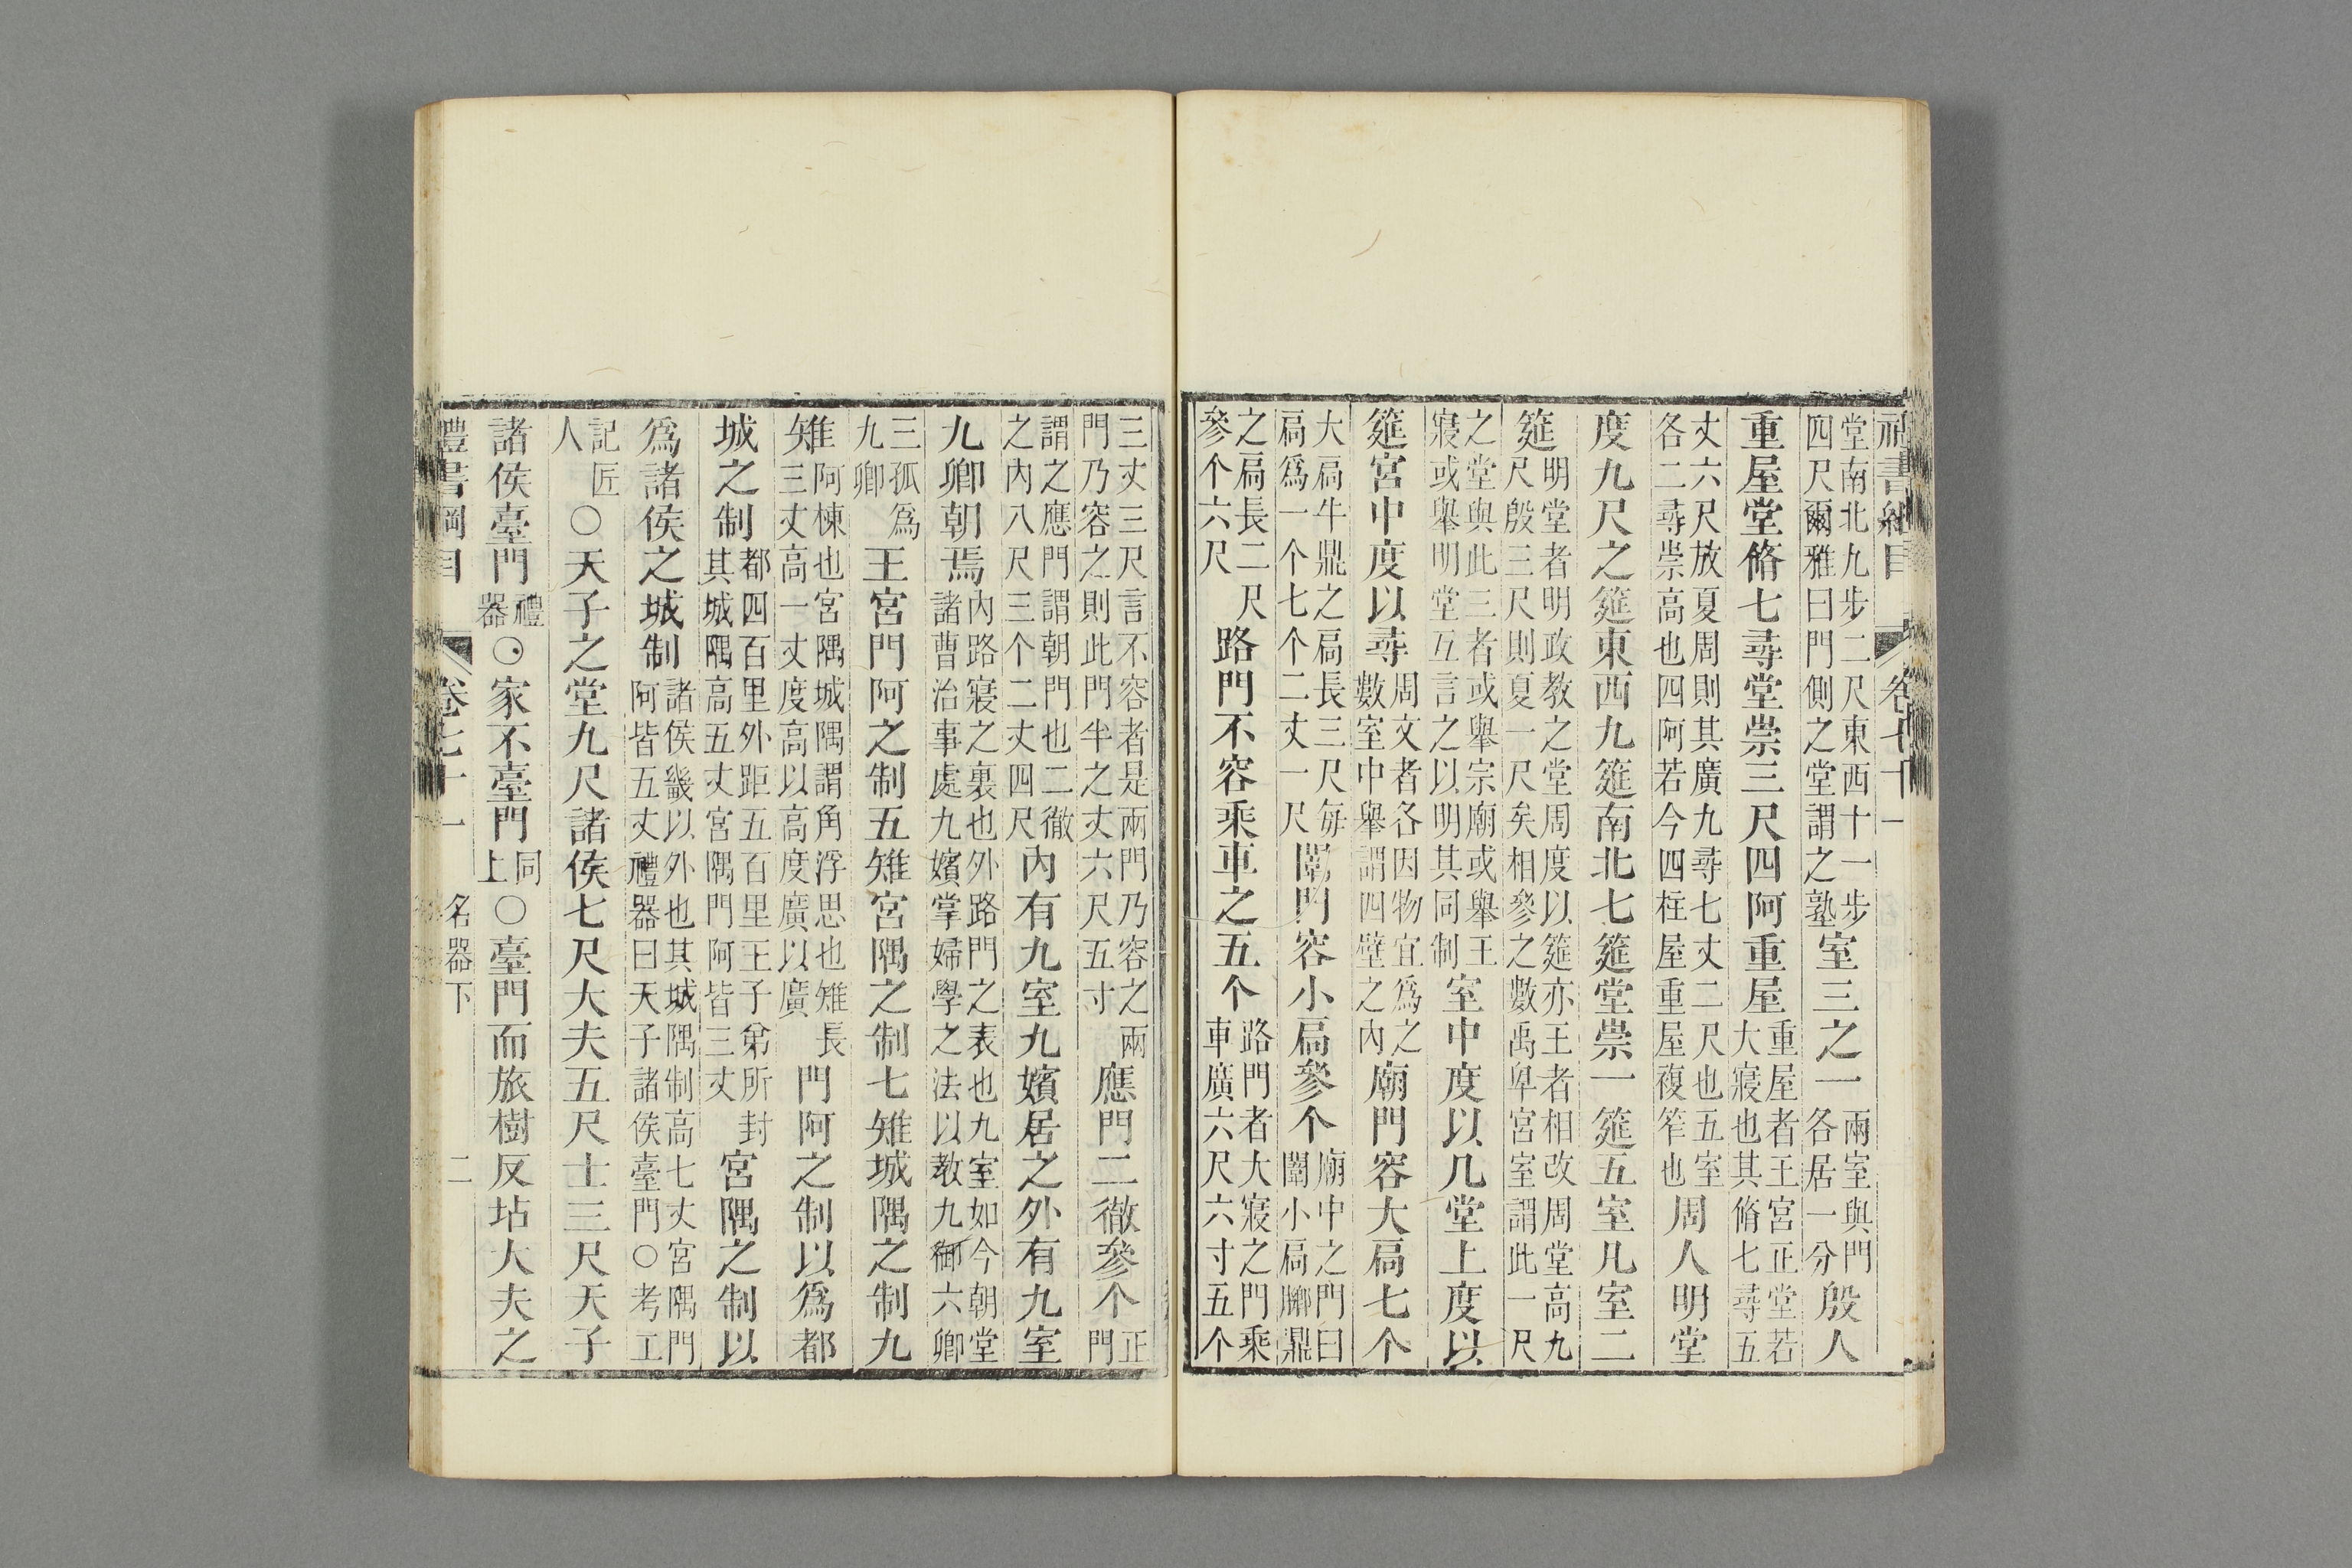 禮書綱目　卷七十一
堂南北九步二尺東西十一步四尺爾雅曰門側之堂謂之塾室三之一兩室與門各居一分殷人
重屋堂脩七尋堂崇三尺四阿重屋重屋者王宮正堂若大寢也其脩七尋五
丈六尺放夏周則其廣九尋七丈二尺也五室各二尋崇高也四阿若今四柱屋重屋複笮也周人明堂
度九尺之筵東西九筵南北七筵堂崇一筵五室凡室二
筵明堂者明政教之堂周度以筵亦王者相改周堂高九尺殷三尺則夏一尺矣相參之數禹卑宮室謂此一尺
之堂與此三者或舉宗廟或舉王寢或舉明堂互言之以明其同制室中度以几堂上度以
筵宮中度以尋周文者各因物宜爲之數室中舉謂四壁之內廟門容大扃七个
大扃牛鼎之扃長三尺每扃爲一个七个二丈一尺闈門容小扃參个廟中之門曰闈小扃膷鼎
之扃長二尺參个六尺路門不容乘車之五个路門者大寢之門乘車廣六尺六寸五个
三丈三尺言不容者是兩門乃容之兩門乃容之則此門半之丈六尺五寸應門二徹參个正門
謂之應門謂朝門也二徹之內八尺三个二丈四尺內有九室九嬪居之外有九室
九卿朝焉內路寢之裏也外路門之表也九室如今朝堂諸曹治事處九嬪掌婦學之法以教九御六卿
三孤爲九卿王宮門阿之制五雉宮隅之制七雉城隅之制九
雉阿棟也宮隅城隅謂角浮思也雉長三丈高一丈度高以高度廣以廣門阿之制以爲都
城之制都四百里外距五百里王子弟所封其城隅高五丈宮隅門阿皆三丈宮隅之制以
爲諸侯之城制諸侯畿以外也其城隅制高七丈宮隅門阿皆五丈禮器曰天子諸侯臺門○考工
記匠人○天子之堂九尺諸侯七尺大夫五尺士三尺天子
諸侯臺門禮器○家不臺門同上○臺門而旅樹反坫大夫之
禮書綱目　卷七十一　名器下　二